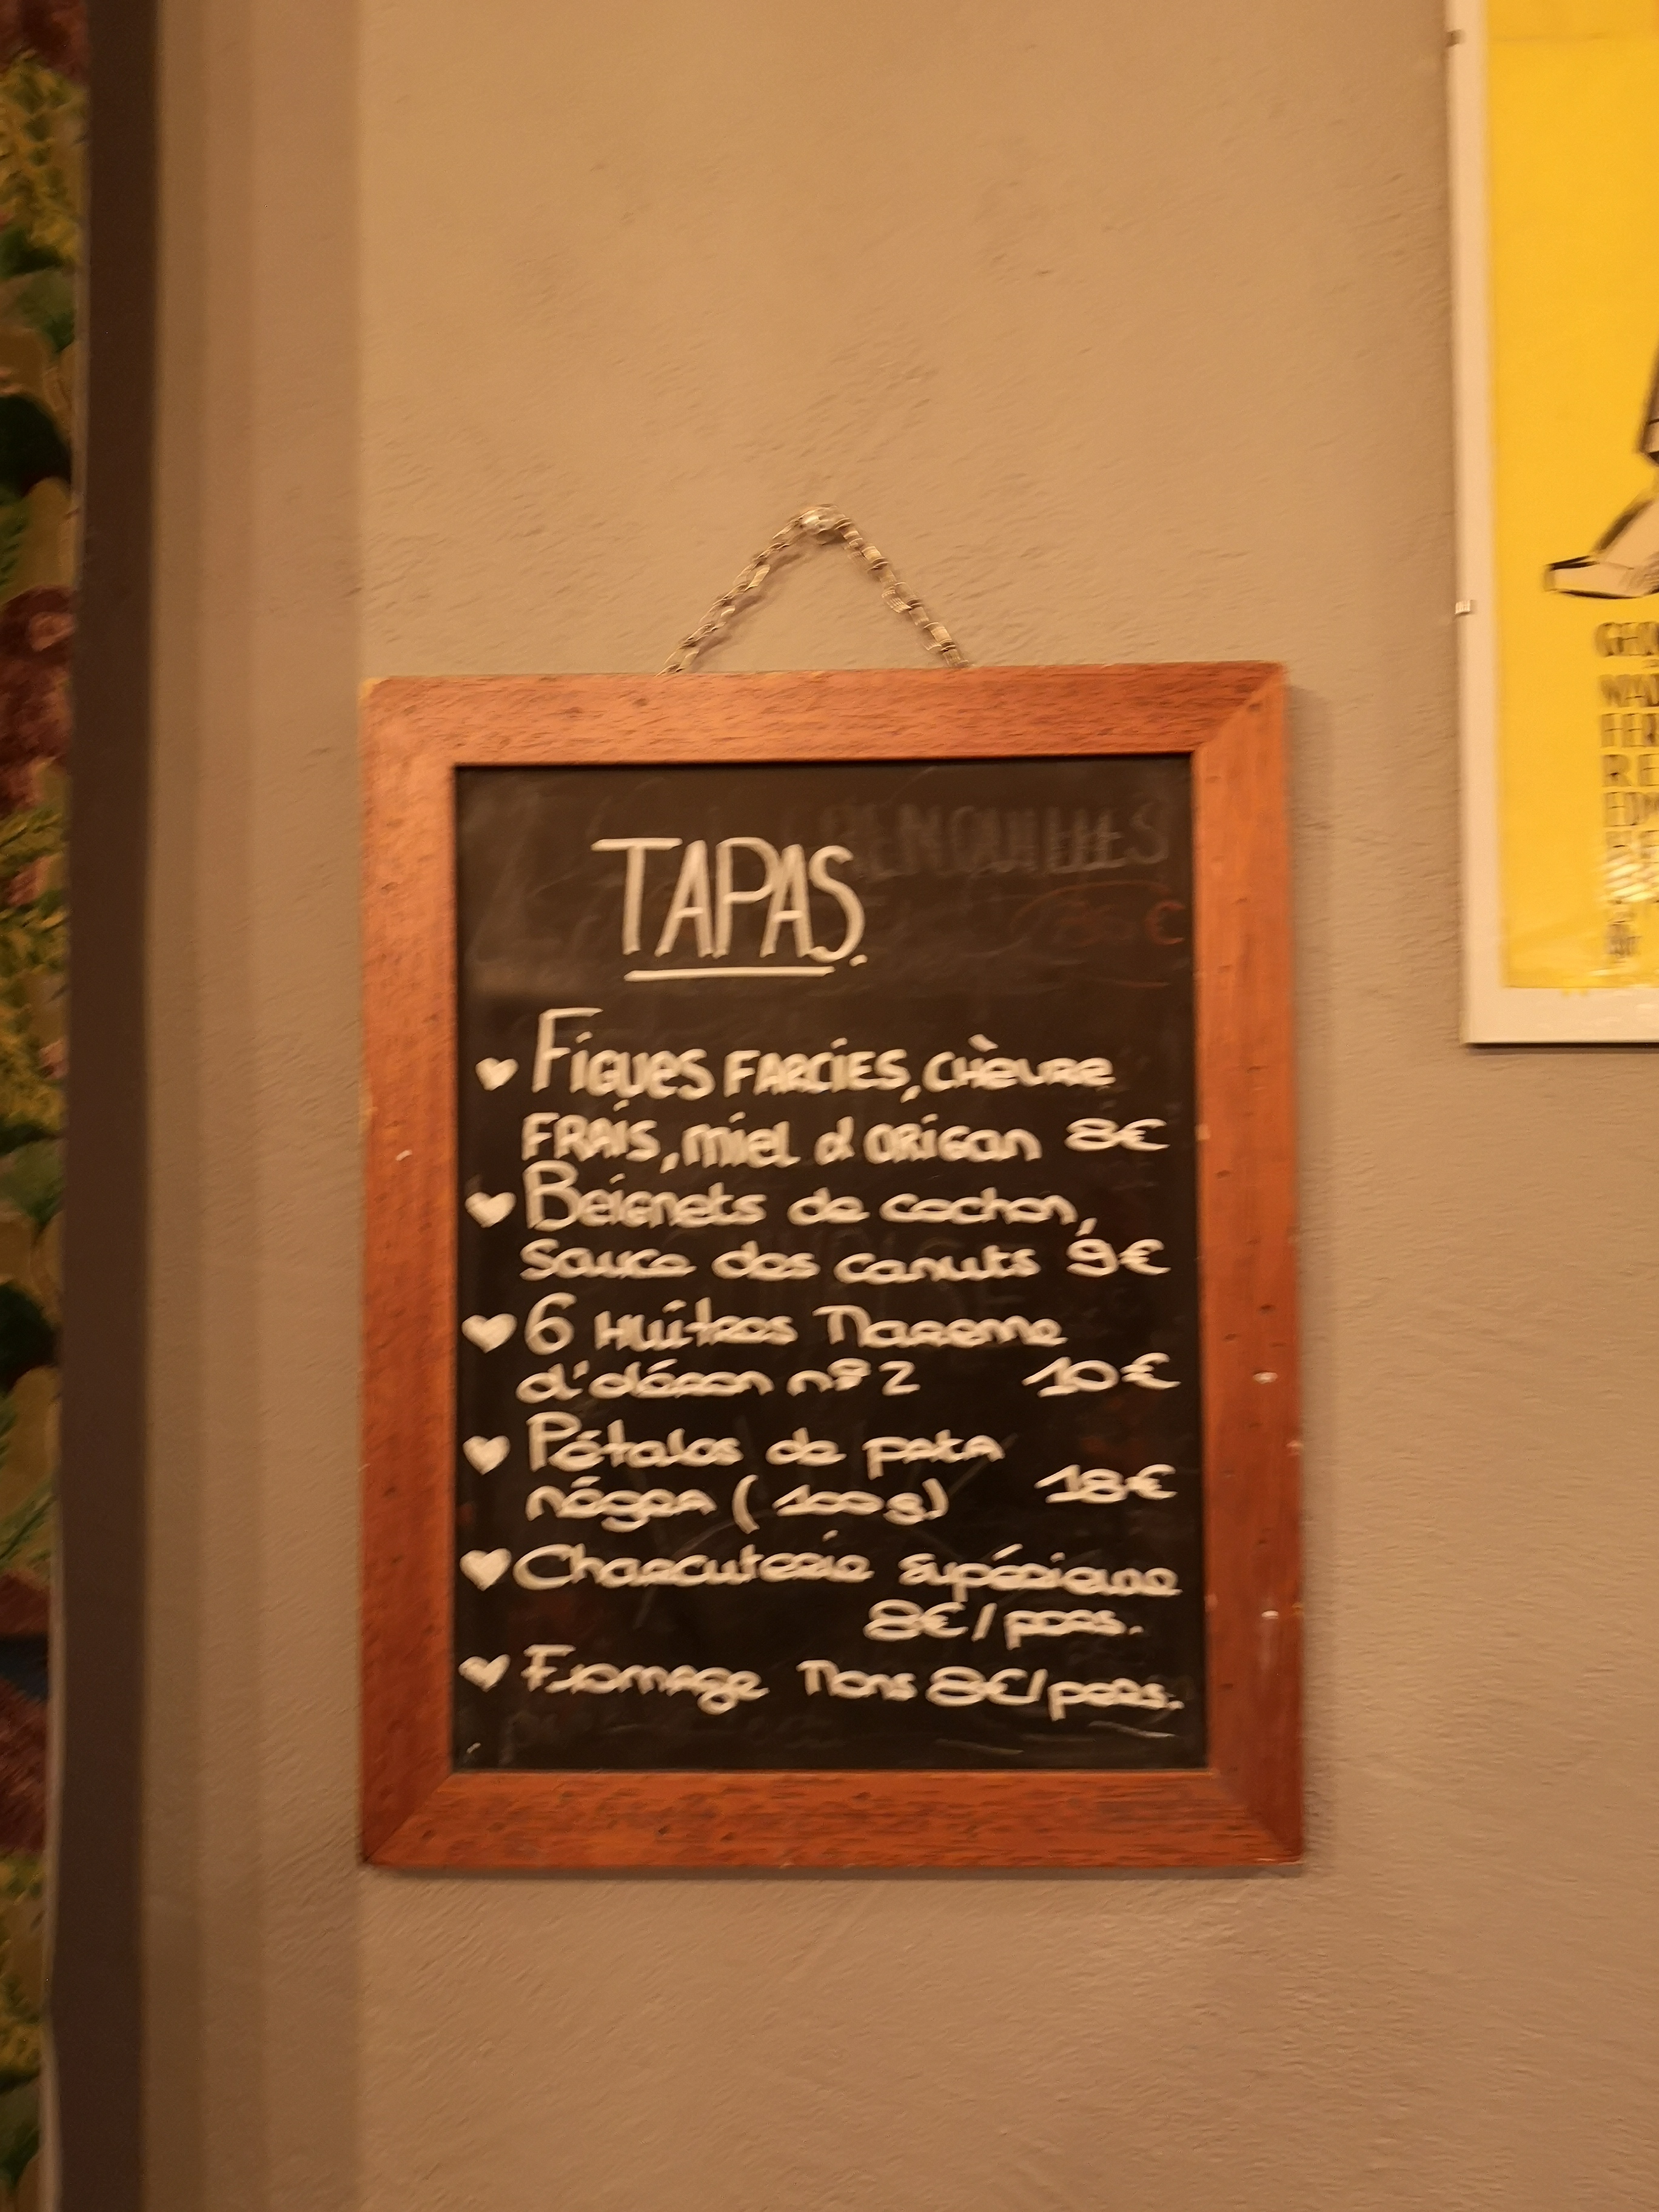 TAPAS.
♥ Figues FARCIES, CHèvre
FRAIS, miel d'origan 8€
♥ Beignets de cochon,
Sauce des canuts 9€
♥ 6 Huîtres Marenne
d'oléron n°2 10€
♥ Pétales de pata
négra (100g) 18€
♥ Charcuterie supérieure
8€/pers.
♥ Fromage Mons 8€/pers.